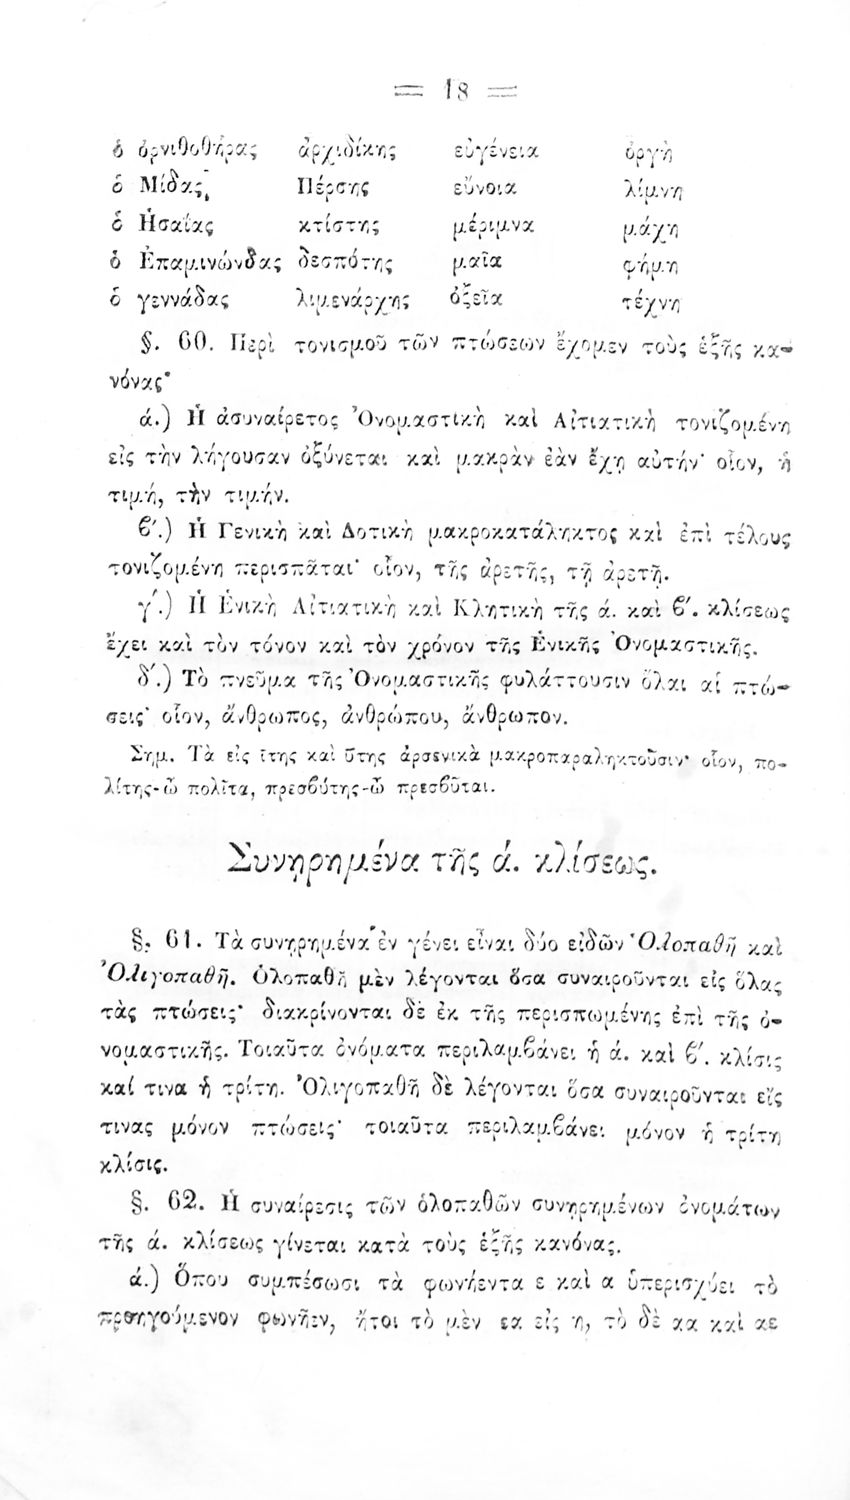 = 18 =
ὁ ὀρνιθοθήρας ἀρχιδίκης εὐγένεια ὀργὴ
ὁ Μίδας, Πέρσης εὔνοια λίμνη
ὁ Ἡσαΐας κτίστης μέριμνα μάχη
ὁ Ἐπαμινώνδας δεσπότης μαῖα φήμη
ὁ γεννάδας λιμενάρχης ὀξεῖα τέχνη
§. 60. Περὶ τονισμοῦ τῶν πτώσεων ἔχομεν τοὺς ἑξῆς κα-
νόνας·
ά.) Ἡ ἀσυναίρετος Ὀνομαστικὴ καὶ Αἰτιατικὴ τονιζομένη
εἰς τὴν λήγουσαν ὀξύνεται καὶ μακρὰν ἐὰν ἔχῃ αὐτήν· οἷον, ἡ
τιμή, τὴν τιμήν.
ϐ′.) Ἡ Γενικὴ καὶ Δοτικὴ μακροκατάληκτος καὶ ἐπὶ τέλους
τονιζομένη περισπᾶται· οἷον, τῆς ἀρετῆς, τῇ ἀρετῇ.
γ′.) Ἡ Ἑνικὴ Αἰτιατικὴ καὶ Κλητικὴ τῆς ά. καὶ ϐ′. κλίσεως
ἔχει καὶ τὸν τόνον καὶ τὸν χρόνον τῆς Ἑνικῆς Ὀνομαστικῆς.
δ′.) Τὸ πνεῦμα τῆς Ὀνομαστικῆς φυλάττουσιν ὅλαι αἱ πτώ-
σεις· οἷον, ἄνθρωπος, ἀνθρώπου, ἄνθρωπον.
Σημ. Τὰ εἰς ῑτης καὶ ῡτης ἀρσενικὰ μακροπαραληκτοῦσιν· οἷον, πο-
λίτης-ὦ πολῖτα, πρεσϐύτης-ὦ πρεσϐῦται.
Συνῃρημένα τῆς ά. κλίσεως.
§. 61. Τὰ συνῃρημένα ἐν γένει εἶναι δύο εἰδῶν Ὁλοπαθῆ καὶ
Ὀλιγοπαθῆ. Ὁλοπαθῆ μὲν λέγονται ὅσα συναιροῦνται εἰς ὅλας
τὰς πτώσεις· διακρίνονται δὲ ἐκ τῆς περισπωμένης ἐπὶ τῆς ὀ-
νομαστικῆς. Τοιαῦτα ὀνόματα περιλαμϐάνει ἡ ά. καὶ ϐ′. κλίσις
καί τινα ἡ τρίτη. Ὀλιγοπαθῆ δὲ λέγονται ὅσα συναιροῦνται εἴς
τινας μόνον πτώσεις· τοιαῦτα περιλαμϐάνει μόνον ἡ τρίτη
κλίσις.
§. 62. Ἡ συναίρεσις τῶν ὁλοπαθῶν συνῃρημένων ὀνομάτων
τῆς ά. κλίσεως γίνεται κατὰ τοὺς ἑξῆς κανόνας.
ά.) Ὅπου συμπέσωσι τὰ φωνήεντα ε καὶ α ὑπερισχύει τὸ
προηγούμενον φωνῆεν, ἤτοι τὸ μὲν εα εἰς η, τὸ δὲ αα καὶ αε